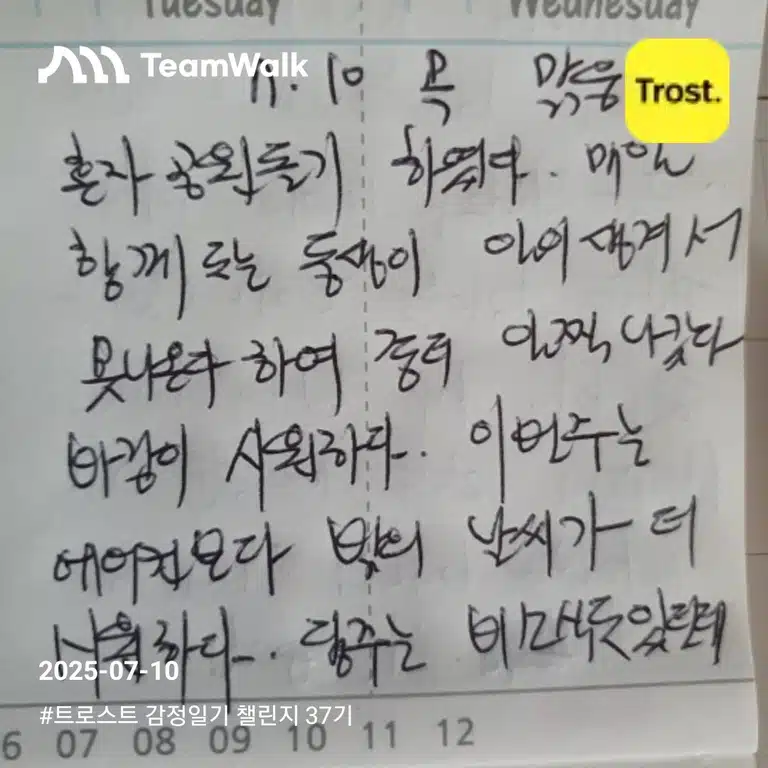 Tuesday Wednesday
TeamWalk
Trost.
7. 10 목 맑음
혼자 공원돌기 하였다. 매일
함께 도는 동생이 일이 생겨서
못나온다 하여 좀더 일찍 나갔다
바람이 시원하다. 이번주는
에어컨보다 밖의 날씨가 더
시원하다. 담주는 비소식도 있던데
2025-07-10
#트로스트 감정일기 챌린지 37기
6 07 08 09 10 11 12